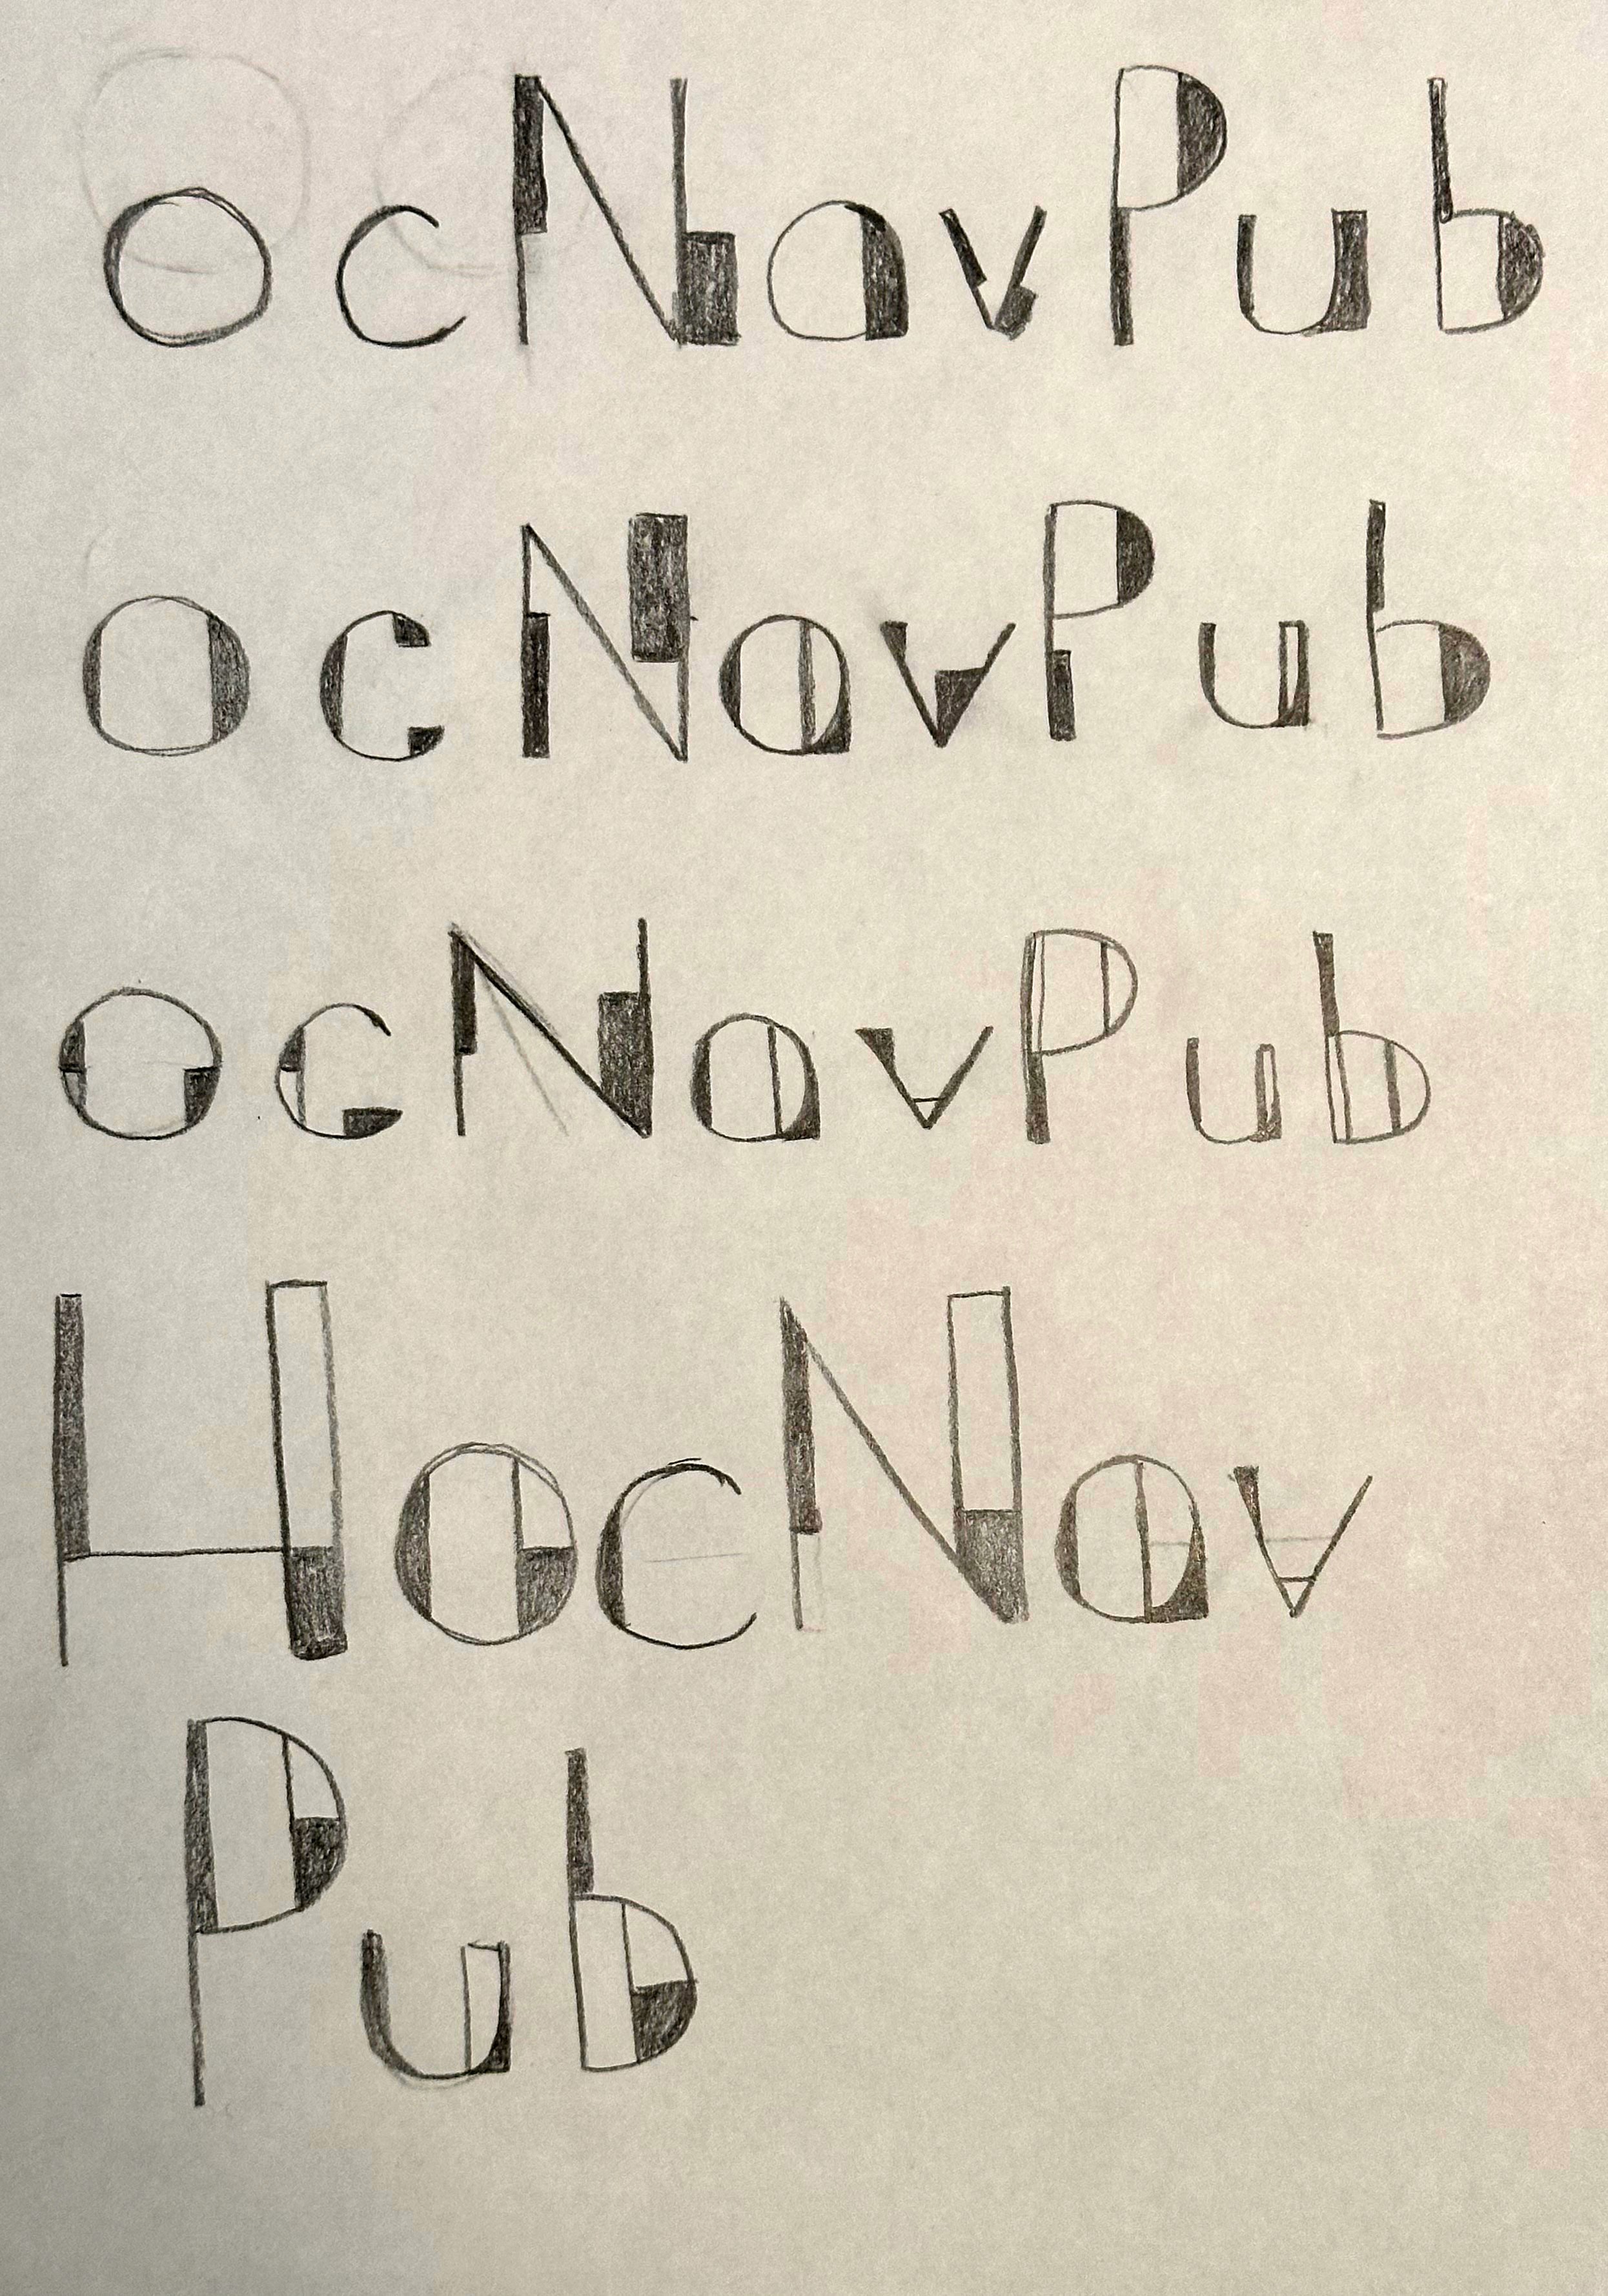 ocNavPub
ocNavPub
ocNavPub
HocNav
Pub